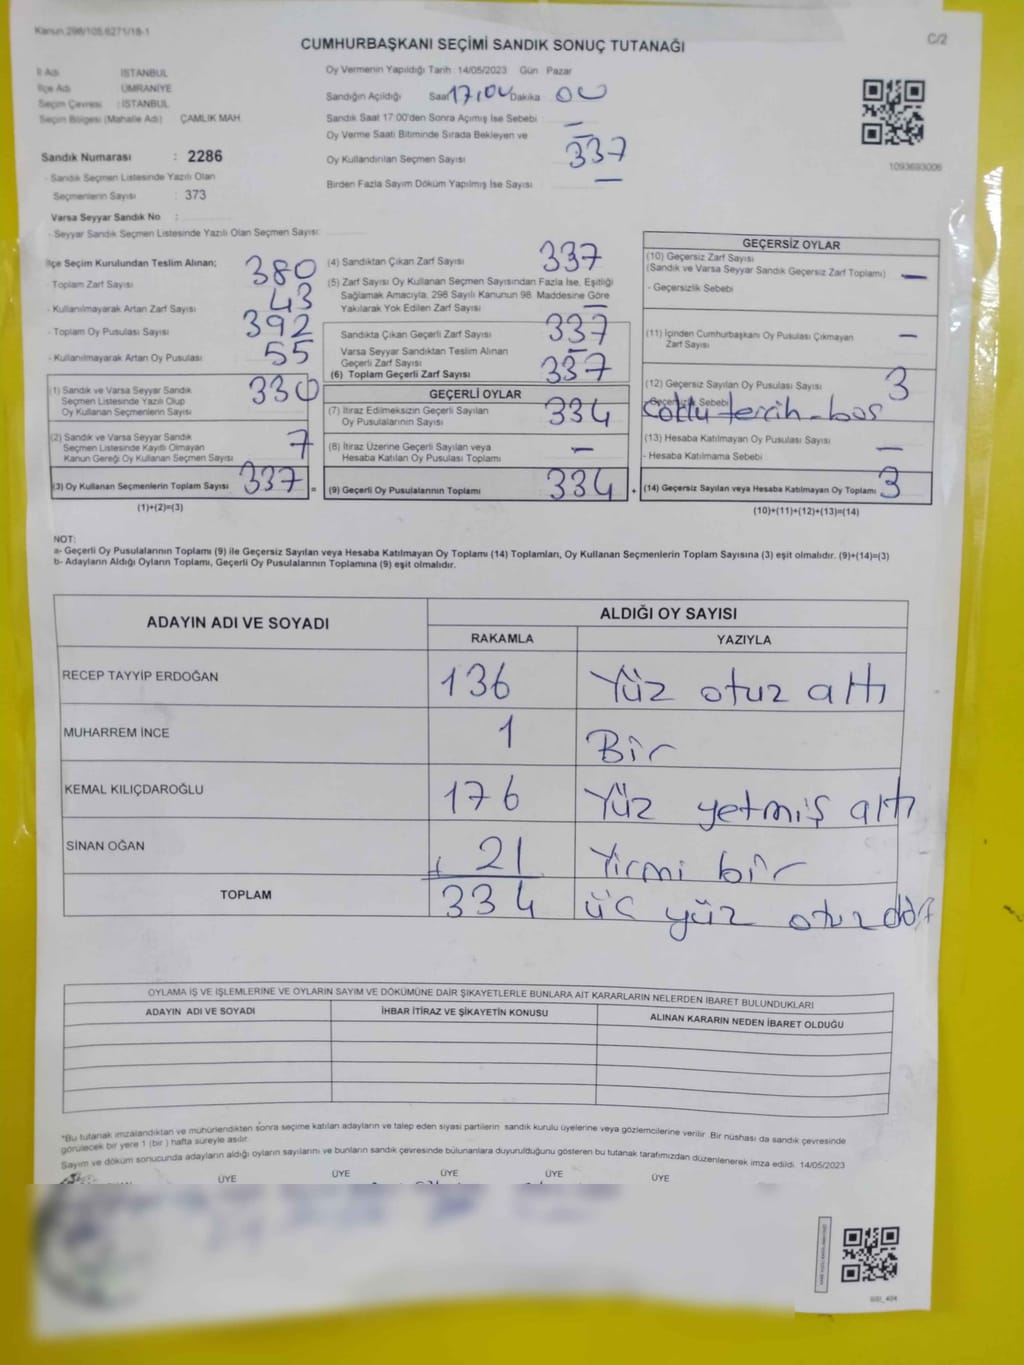 Kanun 298/105.6271/18-1
C/2
CUMHURBAŞKANI SEÇİMİ SANDIK SONUÇ TUTANAĞI
İl Adı : İSTANBUL
İlçe Adı : ÜMRANİYE
Seçim Çevresi : İSTANBUL
Seçim Bölgesi (Mahalle Adı) ÇAMLIK MAH.
Sandık Numarası : 2286
- Sandık Seçmen Listesinde Yazılı Olan
Seçmenlerin Sayısı : 373
Varsa Seyyar Sandık No :
- Seyyar Sandık Seçmen Listesinde Yazılı Olan Seçmen Sayısı:
Oy Vermenin Yapıldığı Tarih :14/05/2023 Gün Pazar
Sandığın Açıldığı Saat 17,00 Dakika 00
Sandık Saat 17:00'den Sonra Açımış İse Sebebi —
Oy Verme Saati Bitiminde Sırada Bekleyen ve
Oy Kullandırılan Seçmen Sayısı 337
Birden Fazla Sayım Döküm Yapılmış İse Sayısı —
1093693006
İlçe Seçim Kurulundan Teslim Alınan;
- Toplam Zarf Sayısı 380
- Kullanılmayarak Artan Zarf Sayısı 43
- Toplam Oy Pusulası Sayısı 392
- Kullanılmayarak Artan Oy Pusulası 55
(1) Sandık ve Varsa Seyyar Sandık
Seçmen Listesinde Yazılı Olup
Oy Kullanan Seçmenlerin Sayısı 330
(2) Sandık ve Varsa Seyyar Sandık
Seçmen Listesinde Kayıtlı Olmayan
Kanun Gereği Oy Kullanan Seçmen Sayısı 7
(3) Oy Kullanan Seçmenlerin Toplam Sayısı 337 =
(1)+(2)=(3)
(4) Sandıktan Çıkan Zarf Sayısı 337
(5) Zarf Sayısı Oy Kullanan Seçmen Sayısından Fazla İse, Eşitliği
Sağlamak Amacıyla, 298 Sayılı Kanunun 98. Maddesine Göre
Yakılarak Yok Edilen Zarf Sayısı —
Sandıkta Çıkan Geçerli Zarf Sayısı 337
Varsa Seyyar Sandıktan Teslim Alınan
Geçerli Zarf Sayısı —
(6) Toplam Geçerli Zarf Sayısı 337
GEÇERLİ OYLAR
(7) İtiraz Edilmeksizin Geçerli Sayılan
Oy Pusulalarının Sayısı 334
(8) İtiraz Üzerine Geçerli Sayılan veya
Hesaba Katılan Oy Pusulası Toplamı —
(9) Geçerli Oy Pusulalarının Toplamı 334 +
GEÇERSİZ OYLAR
(10) Geçersiz Zarf Sayısı
(Sandık ve Varsa Seyyar Sandık Geçersiz Zarf Toplamı) —
- Geçersizlik Sebebi
(11) İçinden Cumhurbaşkanı Oy Pusulası Çıkmayan
Zarf Sayısı —
(12) Geçersiz Sayılan Oy Pusulası Sayısı 3
- Geçersizlik Sebebi Çoklu tercih - boş
(13) Hesaba Katılmayan Oy Pusulası Sayısı —
- Hesaba Katılmama Sebebi
(14) Geçersiz Sayılan veya Hesaba Katılmayan Oy Toplamı 3
(10)+(11)+(12)+(13)=(14)
NOT:
a- Geçerli Oy Pusulalarının Toplamı (9) ile Geçersiz Sayılan veya Hesaba Katılmayan Oy Toplamı (14) Toplamları, Oy Kullanan Seçmenlerin Toplam Sayısına (3) eşit olmalıdır. (9)+(14)=(3)
b- Adayların Aldığı Oyların Toplamı, Geçerli Oy Pusulalarının Toplamına (9) eşit olmalıdır.
ADAYIN ADI VE SOYADI
ALDIĞI OY SAYISI
RAKAMLA YAZIYLA
RECEP TAYYİP ERDOĞAN 136 Yüz otuz altı
MUHARREM İNCE 1 Bir
KEMAL KILIÇDAROĞLU 176 Yüz yetmiş altı
SİNAN OĞAN + 21 Yirmi bir
TOPLAM 334 üç yüz otuz dört
OYLAMA İŞ VE İŞLEMLERİNE VE OYLARIN SAYIM VE DÖKÜMÜNE DAİR ŞİKAYETLERLE BUNLARA AİT KARARLARIN NELERDEN İBARET BULUNDUKLARI
ADAYIN ADI VE SOYADI İHBAR İTİRAZ VE ŞİKAYETİN KONUSU ALINAN KARARIN NEDEN İBARET OLDUĞU
*Bu tutanak imzalandıktan ve mühürlendikten sonra seçime katılan adayların ve talep eden siyasi partilerin sandık kurulu üyelerine veya gözlemcilerine verilir. Bir nüshası da sandık çevresinde
görülecek bir yere 1 (bir) hafta süreyle asılır.
Sayım ve döküm sonucunda adayların aldığı oyların sayılarını ve bunların sandık çevresinde bulunanlara duyurulduğunu gösteren bu tutanak tarafımızdan düzenlenerek imza edildi. 14/05/2023
ÜYE ÜYE ÜYE ÜYE ÜYE